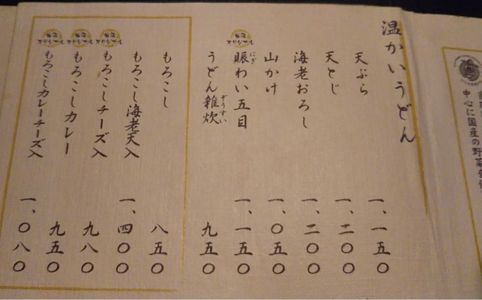 温かいうどん
天ぷら 一、一五〇
天とじ 一、二〇〇
海老おろし 一、二〇〇
山かけ 一、〇五〇
賑わい五目 一、一五〇
にぎ
うどん雑炊 九五〇
ぞうすい
もろこし 八五〇
もろこし海老天入 一、四〇〇
もろこしチーズ入 九八〇
もろこしカレー 九五〇
もろこしカレーチーズ入 一、〇八〇
中心に国産の野菜